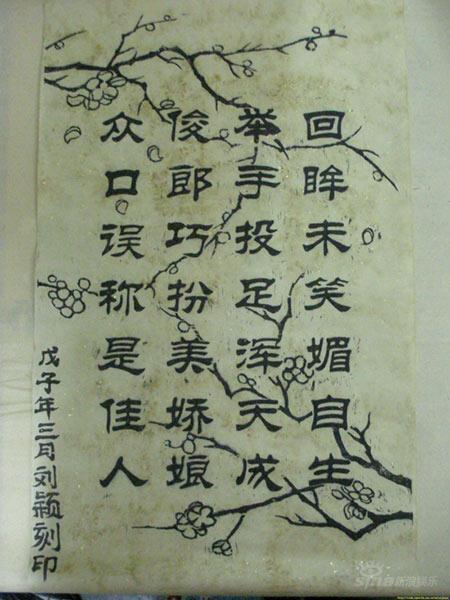 回眸未笑媚自生
举手投足浑天成
俊郎巧扮美娇娘
众口误称是佳人
戊子年三月刘颖刻印
sina新浪娱乐